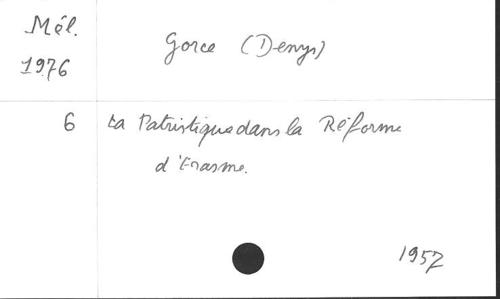 Mél.
1976
Gorce (Denys)
6 La Patristique dans la Réforme
d'Erasme.
1957